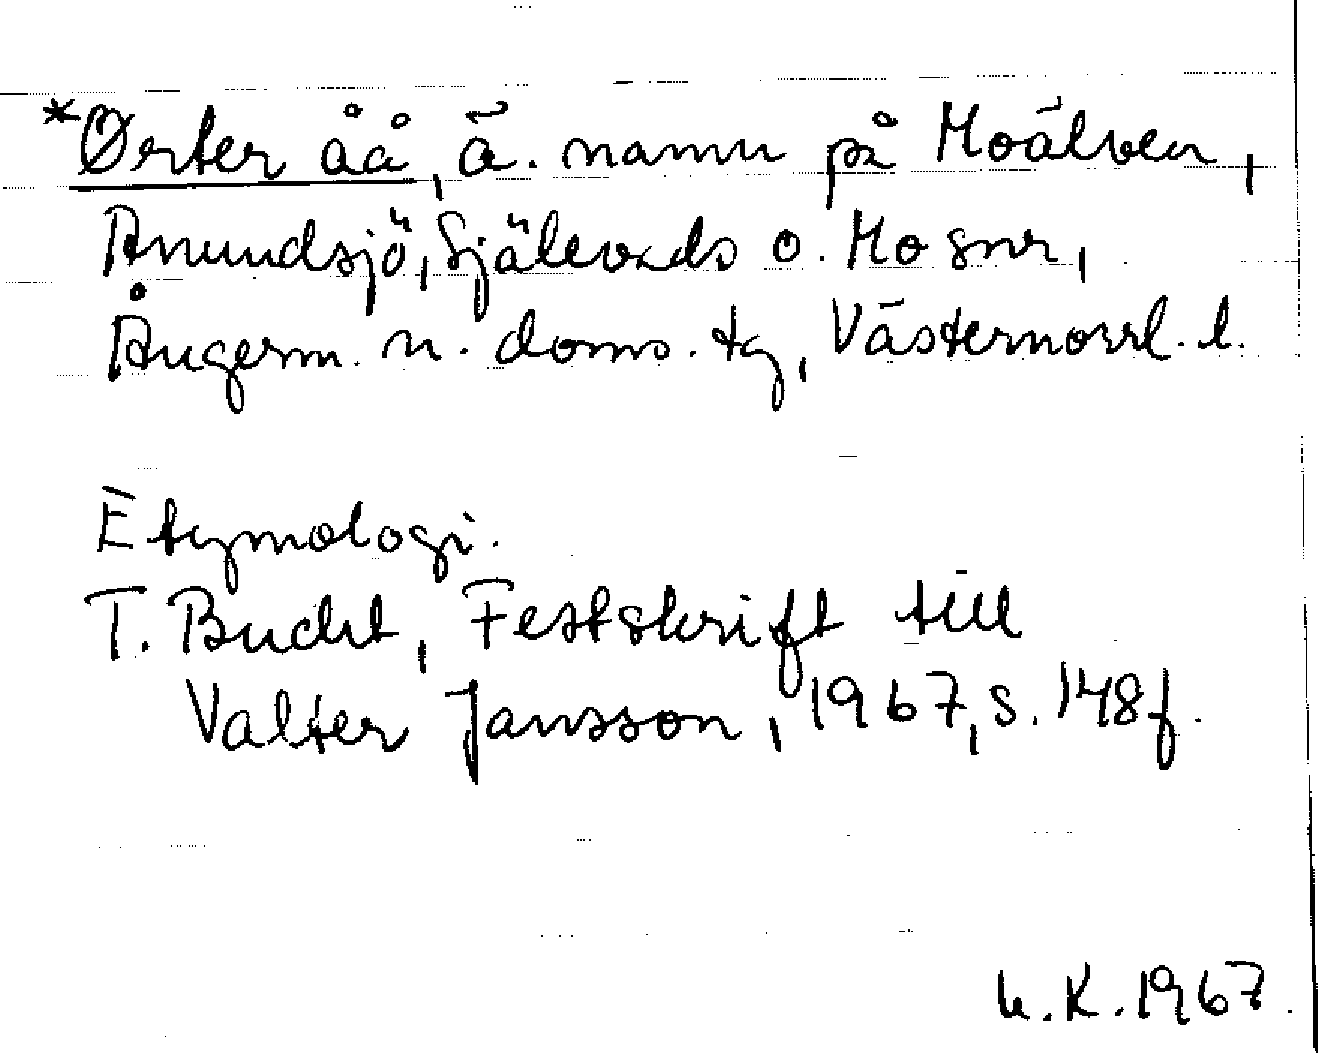 *Ørter åå, ä. namn på Moälven,
Anundsjö, Själevads o. Mo snr,
Ångerm. n. doms. tg, Västernorrl. l.
Etymologi.
T. Bucht, Festskrift till
Valter Jansson, 1967, s. 148 f.
U.K. 1967.